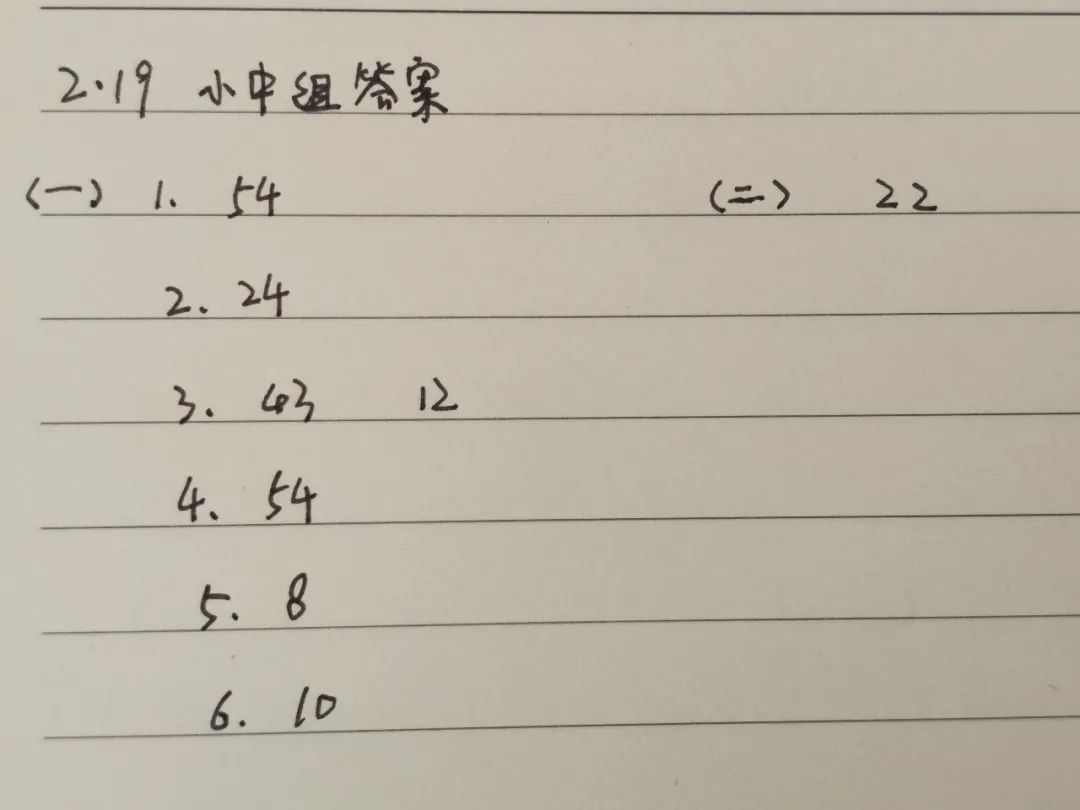 2.19 小中组答案
(一) 1. 54 (二) 22
2. 24
3. 43 12
4. 54
5. 8
6. 10